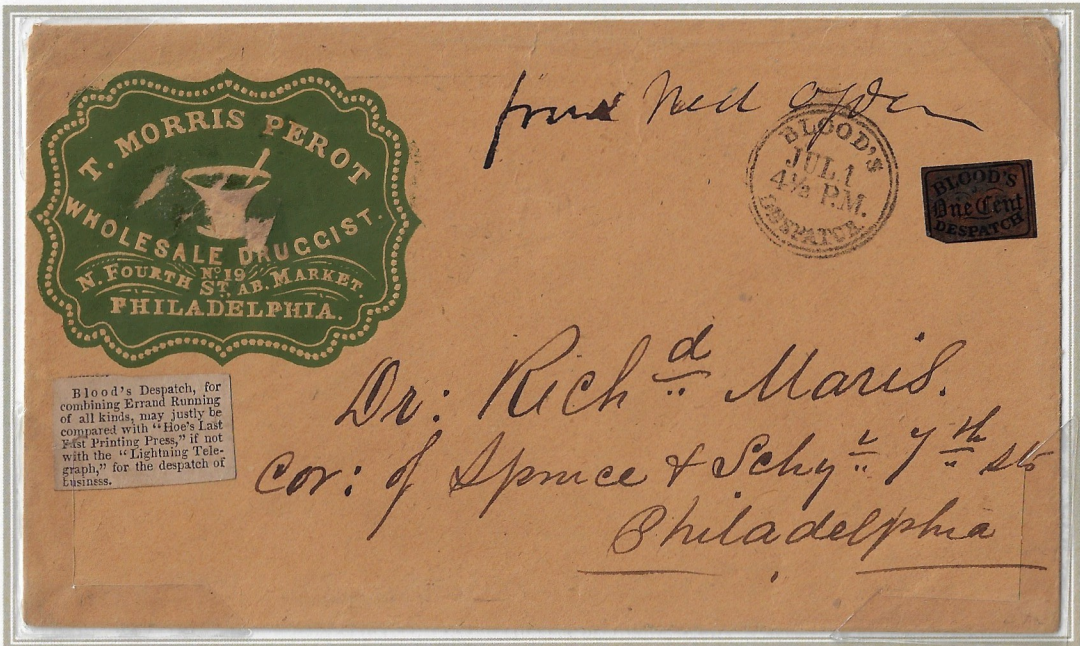 T. MORRIS PEROT
WHOLESALE DRUGGIST.
No 19
N. FOURTH ST. AB. MARKET.
PHILADELPHIA.
from Ned
BLOOD'S
JUL.1
4½ P.M.
DESPATCH
BLOOD'S
One Cent
DESPATCH
Blood's Despatch, for
combining Errand Running
of all kinds, may justly be
compared with "Hoe's Last
Fast Printing Press," if not
with the "Lightning Tele-
graph," for the despatch of
businsss.
Dr: Richd Maris.
Cor: of Spruce & Schyl 7th sts
Philadelphia